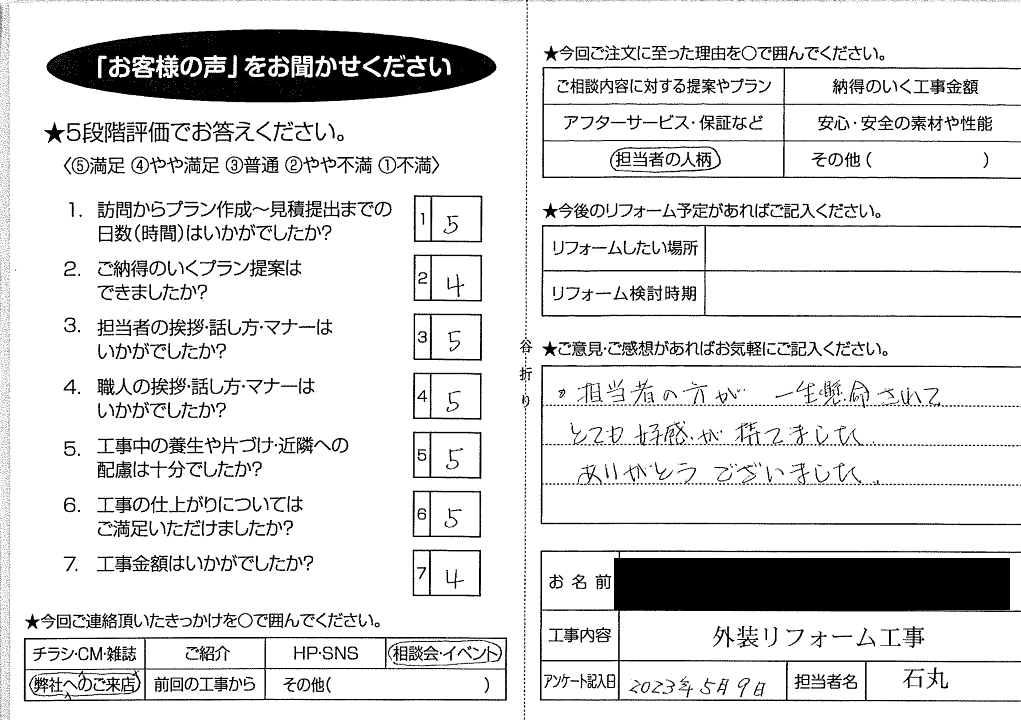 「お客様の声」をお聞かせください
★5段階評価でお答えください。
〈⑤満足 ④やや満足 ③普通 ②やや不満 ①不満〉
1. 訪問からプラン作成～見積提出までの
日数(時間)はいかがでしたか?
1 5
2. ご納得のいくプラン提案は
できましたか?
2 4
3. 担当者の挨拶・話し方・マナーは
いかがでしたか?
3 5
4. 職人の挨拶・話し方・マナーは
いかがでしたか?
4 5
5. 工事中の養生や片づけ・近隣への
配慮は十分でしたか?
5 5
6. 工事の仕上がりについては
ご満足いただけましたか?
6 5
7. 工事金額はいかがでしたか?
7 4
★今回ご連絡頂いたきっかけを○で囲んでください。
チラシ・CM・雑誌 ご紹介 HP・SNS 相談会・イベント
弊社へのご来店 前回の工事から その他( )
谷折り
★今回ご注文に至った理由を○で囲んでください。
ご相談内容に対する提案やプラン 納得のいく工事金額
アフターサービス・保証など 安心・安全の素材や性能
担当者の人柄 その他( )
★今後のリフォーム予定があればご記入ください。
リフォームしたい場所
リフォーム検討時期
★ご意見・ご感想があればお気軽にご記入ください。
担当者の方が 一生懸命されて
とても 好感が 持てました。
ありがとう ございました。
お名前
工事内容 外装リフォーム工事
アンケート記入日 2023年5月9日 担当者名 石丸